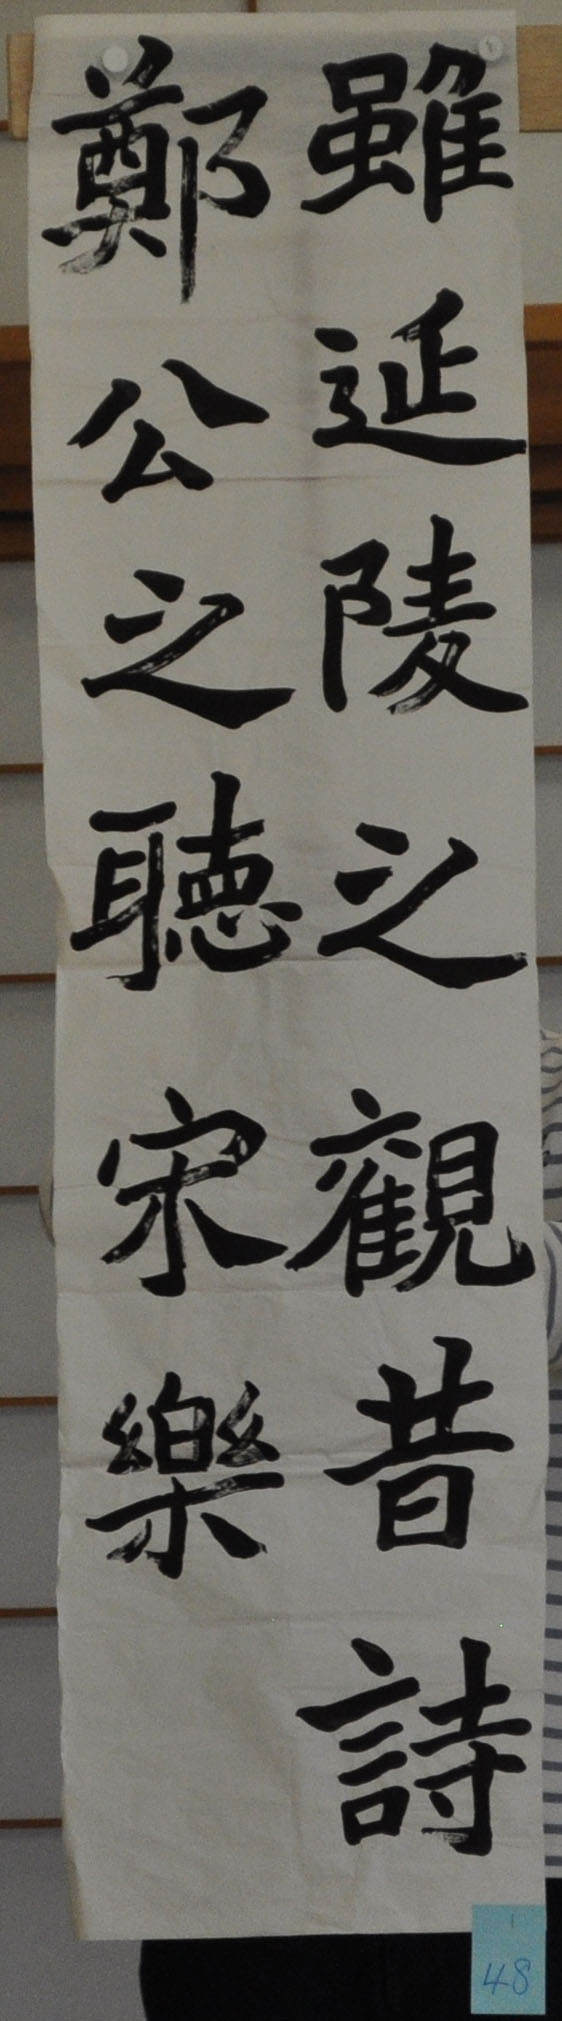 雖延陵之觀昔詩
鄭公之聽宋樂
48